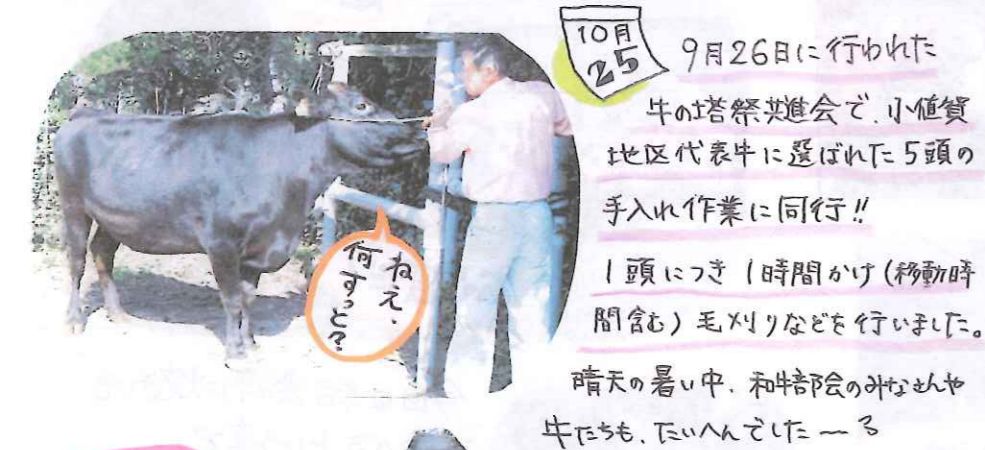 10月
25
9月26日に行われた
牛の塔祭共進会で、小値賀
地区代表牛に選ばれた5頭の
手入れ作業に同行!!
1頭につき1時間かけ(移動時
間含む)毛刈りなどを行いました。
晴天の暑い中、和牛部会のみなさんや
牛たちも、たいへんでした〜
ねえ、
何すっと?